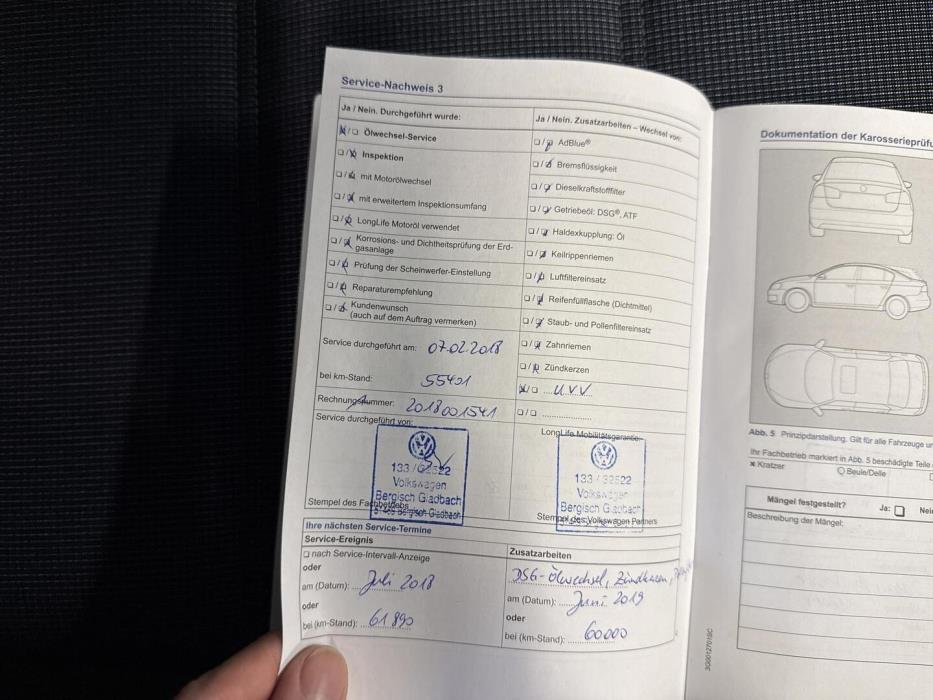 Service-Nachweis 3
Ja / Nein. Durchgeführt wurde:
Ölwechsel-Service
Inspektion
mit Motorölwechsel
mit erweitertem Inspektionsumfang
LongLife Motoröl verwendet
Korrosions- und Dichtheitsprüfung der Erd-
gasanlage
Prüfung der Scheinwerfer-Einstellung
Reparaturempfehlung
Kundenwunsch
(auch auf dem Auftrag vermerken)
Service durchgeführt am: 07.02.2018
bei km-Stand: 55421
Rechnungsnummer: 2018001541
Service durchgeführt von:
133 /
Volkswagen
Bergisch Gladbach
Bergisch Gladbach
Stempel des Fachbetriebs
Ja / Nein. Zusatzarbeiten – Wechsel von:
AdBlue®
Bremsflüssigkeit
Dieselkraftstofffilter
Getriebeöl: DSG®, ATF
Haldexkupplung: Öl
Keilrippenriemen
Luftfiltereinsatz
Reifenfüllflasche (Dichtmittel)
Staub- und Pollenfiltereinsatz
Zahnriemen
Zündkerzen
UVV
LongLife Mobilitätsgarantie
133 / 32522
Volkswagen
Bergisch Gladbach
Stempel des Volkswagen Partners
Ihre nächsten Service-Termine
Service-Ereignis
nach Service-Intervall-Anzeige
oder
am (Datum): Juli 2018
oder
bei (km-Stand): 61890
Zusatzarbeiten
DSG-Ölwechsel, Zündkerzen,
am (Datum): Juni 2019
oder
bei (km-Stand): 60000
Dokumentation der Karosserieprüfu
Abb. 5 Prinzipdarstellung. Gilt für alle Fahrzeuge un
Ihr Fachbetrieb markiert in Abb. 5 beschädigte Teile
Kratzer
Beule/Delle
Mängel festgestellt? Ja: Nein
Beschreibung der Mängel: